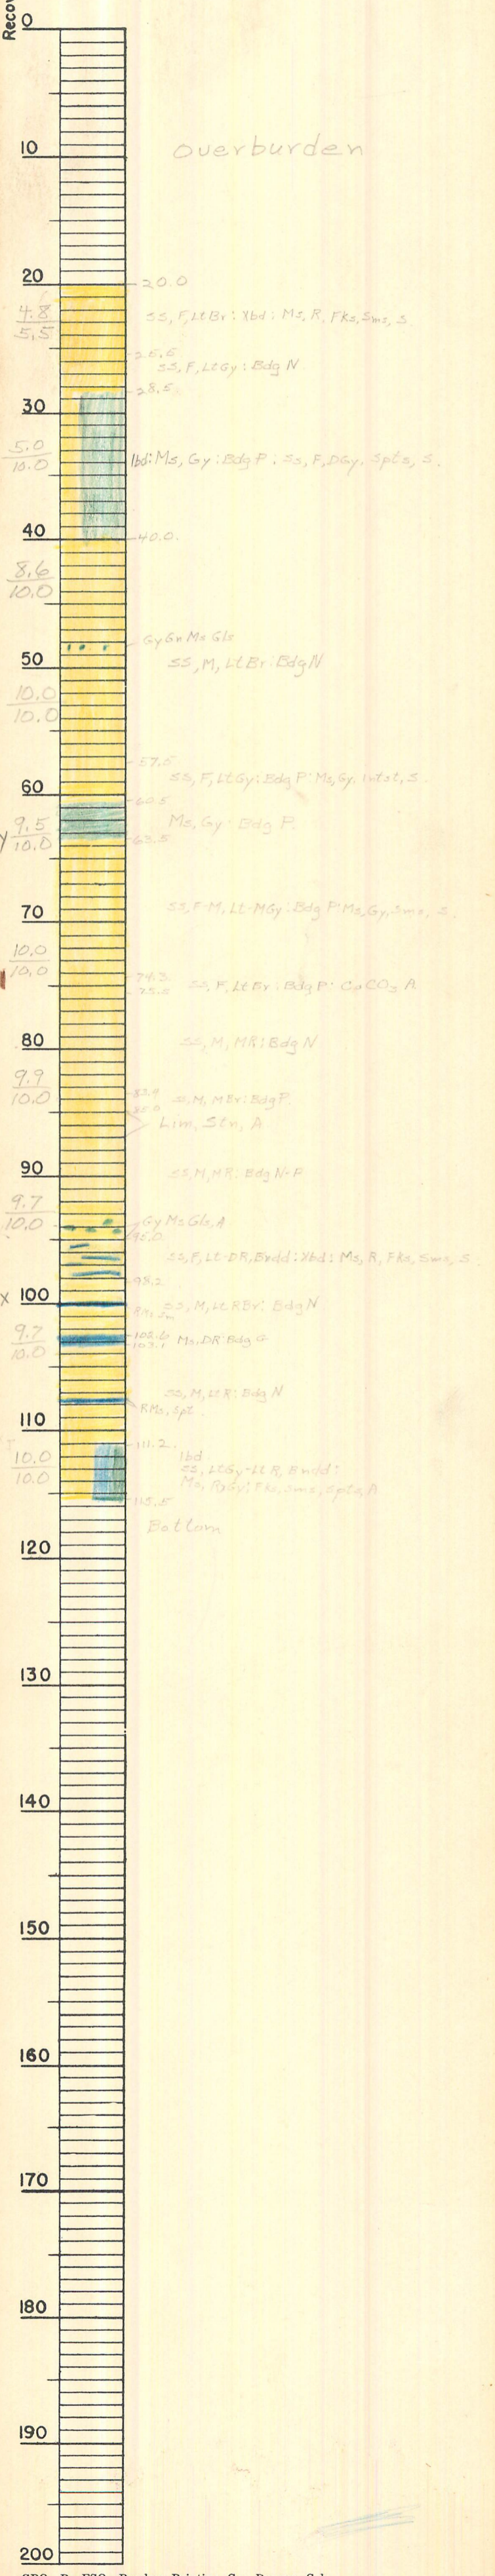 Recov
0
10
overburden
20
20.0
4.8
5.5
SS, F, LtBr: Xbd: Ms, R, Fks, Sms, S
SS, F, LtGy: Bdg N
28.5
30
5.0
10.0
Ibd: Ms, Gy: Bdg P: SS, F, DGy, Spts, S.
40
40.0
8.6
10.0
GyGn Ms Gls
50
SS, M, LtBr: Bdg N
10.0
10.0
57.5
SS, F, LtGy: Bdg P: Ms, Gy, Intst, S
60
60.5
9.5
10.0
Ms, Gy: Bdg P.
63.5
y
70
SS, F-M, Lt-MGy: Bdg P: Ms, Gy, Sms, S
10.0
10.0
74.3
75.5
SS, F, LtBr: Bdg P: CaCO3 A
80
SS, M, MR: Bdg N
9.9
10.0
82.9
SS, M, MBr: Bdg P.
85.0
Lim, Stn, A
90
SS, M, MR: Bdg N-P
9.7
10.0
Gy Ms Gls, A
95.0
SS, F, Lt-DR, Bndd: Xbd: Ms, R, Fks, Sms, S
98.2
x
100
SS, M, LtRBr: Bdg N
9.7
10.0
102.6
103.1
Ms, DR: Bdg G
SS, M, LtR: Bdg N
RMs, Spt
110
111.2
10.0
10.0
Ibd
SS, LtGy-LtR, Bndd:
115.5
Bottom
120
130
140
150
160
170
180
190
200